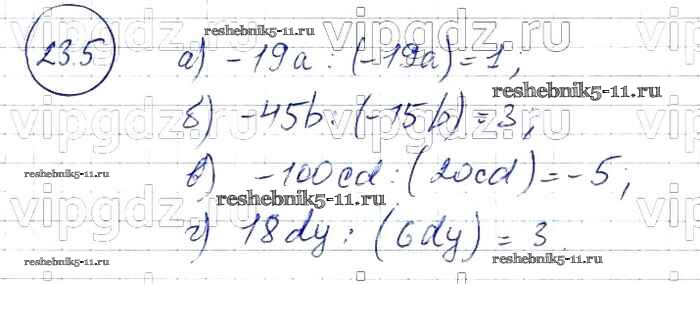 23.5
а) -19a : (-19a) = 1;
б) -45b : (-15b) = 3;
в) -100cd : (20cd) = -5;
г) 18dy : (6dy) = 3.
reshebnik5-11.ru
reshebnik5-11.ru
reshebnik5-11.ru
reshebnik5-11.ru
reshebnik5-11.ru
reshebnik5-11.ru
vipgdz.ru vipgdz.ru
vipgdz.ru vipgdz.ru
vipgdz.ru vipgdz.ru
vipgdz.ru vipgdz.ru